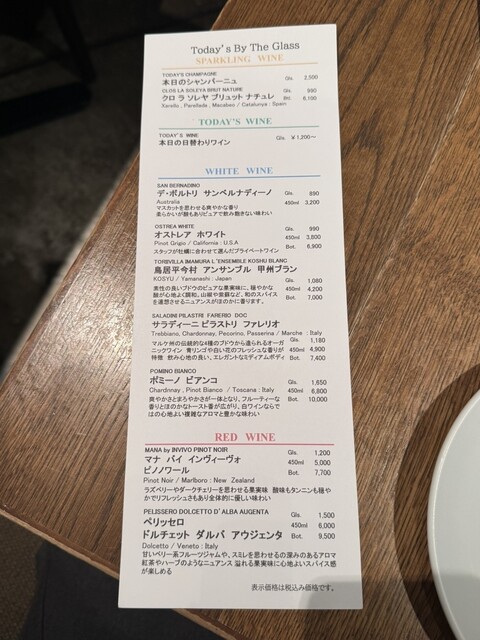 Today's By The Glass
SPARKLING WINE
TODAY'S CHAMPAGNE
本日のシャンパーニュ Gls. 2,500
CLOS LA SOLEYA BRUT NATURE Gls. 990
クロ ラ ソレヤ ブリュット ナチュレ Btl. 6,100
Xarello, Parellada, Macabeo / Catalunya : Spain
TODAY'S WINE
TODAY'S WINE
本日の日替わりワイン Gls. ¥1,200~
WHITE WINE
SAN BERNADINO
デ・ボルトリ サンベルナディーノ Gls. 890
Australia 450ml 3,200
マスカットを思わせる爽やかな香り
柔らかいが酸もありピュアで飲み飽きない味わい
OSTREA WHITE Gls. 990
オストレア ホワイト 450ml 3,800
Pinot Grigio / California : U.S.A Bot. 6,900
スタッフが牡蠣に合わせて選んだプライベートワイン
TORIIVILLA IMAMURA L'ENSEMBLE KOSHU BLANC
鳥居平今村 アンサンブル 甲州ブラン
KOSYU / Yamanashi : Japan Gls. 1,080
素性の良いブドウのピュアな果実味に、穏やかな 450ml 4,200
酸が心地よく調和。山椒や紫蘇など、和のスパイス Bot. 7,000
を連想させるニュアンスがほのかに香ります。
SALADINI PILASTRI FARERIO DOC
サラディーニ ピラストリ ファレリオ
Trebbiano, Chardonnay, Pecorino, Passerina / Marche : Italy
マルケ州の伝統的な4種のブドウから造られるオーガ Gls. 1,180
ニックワイン 青リンゴや白い花のフレッシュな香りが 450ml 4,900
特徴 飲み心地の良い、エレガントなミディアムボディ Bot. 7,400
POMINO BIANCO
ポミーノ ビアンコ Gls. 1,650
Chardnnay , Pinot Bianco / Toscana : Italy 450ml 6,800
爽やかさとまろやかさが一体となり、フルーティーな Bot. 10,000
香りとほのかなトースト香が広がり、白ワインならで
はの心地よい複雑なアロマと豊かな味わい
RED WINE
MANA by INVIVO PINOT NOIR Gls. 1,200
マナ バイ インヴィーヴォ 450ml 5,000
ピノノワール Bot. 7,700
Pinot Noir / Marlboro : New Zealand
ラズベリーやダークチェリーを思わせる果実味 酸味もタンニンも穏や
かでリフレッシュさもあり全体的に優しい味わい
PELISSERO DOLCETTO D'ALBA AUGENTA Gls. 1,500
ペリッセロ 450ml 6,000
ドルチェット ダルバ アウジェンタ Bot. 9,500
Dolcetto / Veneto : Italy
甘いベリー系フルーツジャムや、スミレを思わせる の深みのあるアロマ
紅茶やハーブのようなニュアンス 溢れる果実味に心地よいスパイス感
が楽しめる
表示価格は税込み価格です。